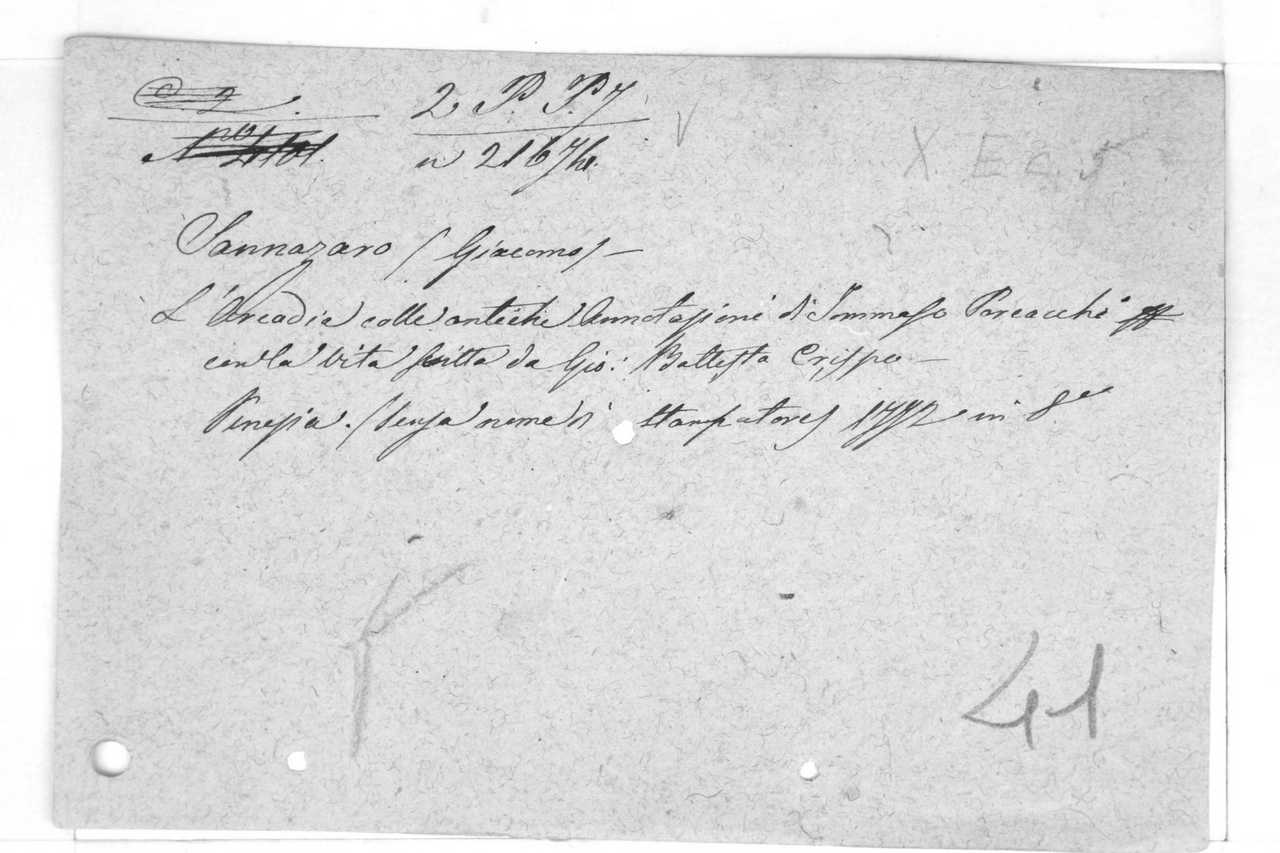 2 P. P. 7
X E C. 5
Sannazaro (Giacomo) —
L'Arcadia colle antiche Annotazioni di Tommaso Porcacchi
con la vita scritta da Gio: Battista Crispo —
Venezia. (senza nome di stampatore) in 8º
41